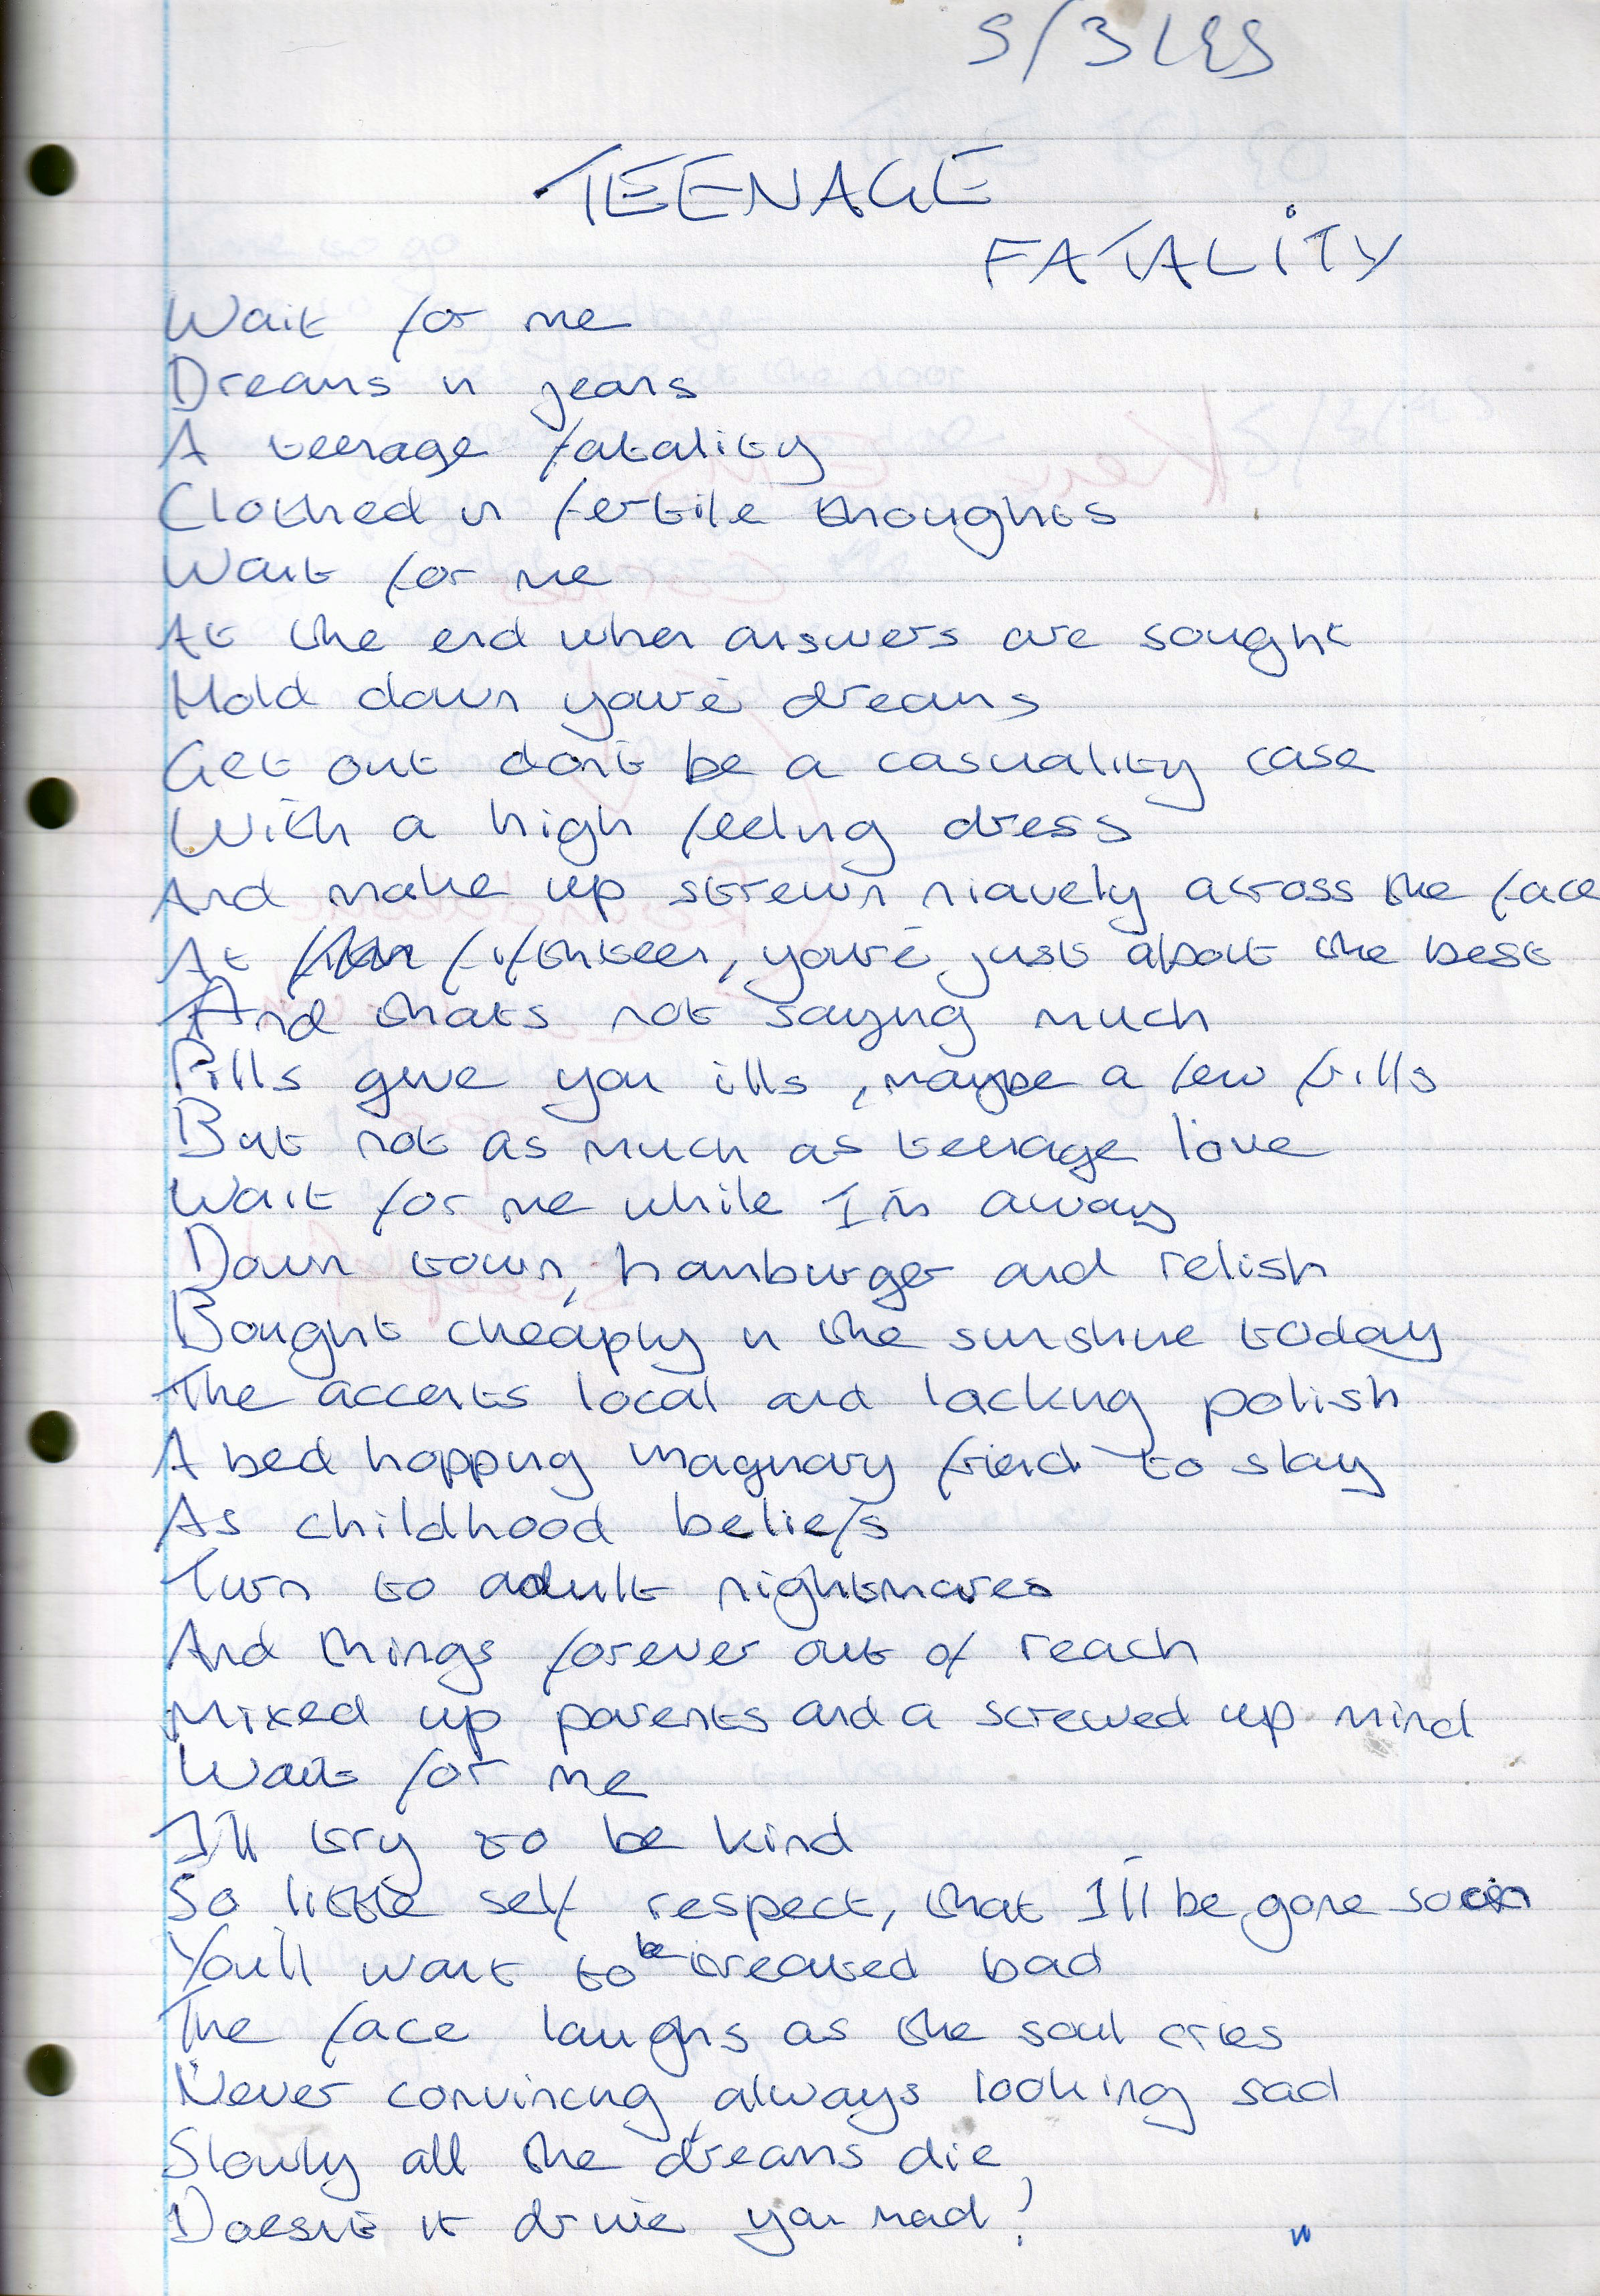 TEENAGE
FATALITY
Wait for me
Dreams in jeans
A teenage fatality
Clothed in fertile thoughts
Wait for me
At the end when answers are sought
Hold down you're dreams
Get out don't be a casuality case
With a high feeling dress
And make up strewn niavely across the face
At fifthteen, you're just about the best
And thats not saying much
Pills give you ills, maybe a few frills
But not as much as teenage love
Wait for me while I'm away
Down town, hamburger and relish
Bought cheaply in the sunshine today
The accents local and lacking polish
A bed hopping imaginary friend to slay
As childhood beliefs
Turn to adult nightmares
And things forever out of reach
Mixed up parents and a screwed up mind
Wait for me
I'll try to be kind
So little self respect, that I'll be gone soon
You'll want to be treated bad
The face laughs as the soul cries
Never convincing, always looking sad
Slowly all the dreams die
Doesn't it drive you mad?